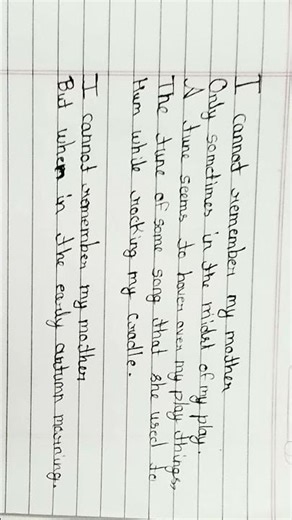 I cannot remember my mother
Only sometimes in the midst of my play.
A tune seems to hover over my play things,
The tune of some song that she used to
Hum while rocking my cradle.
I cannot remember my mother
But when in the early autumn morning.